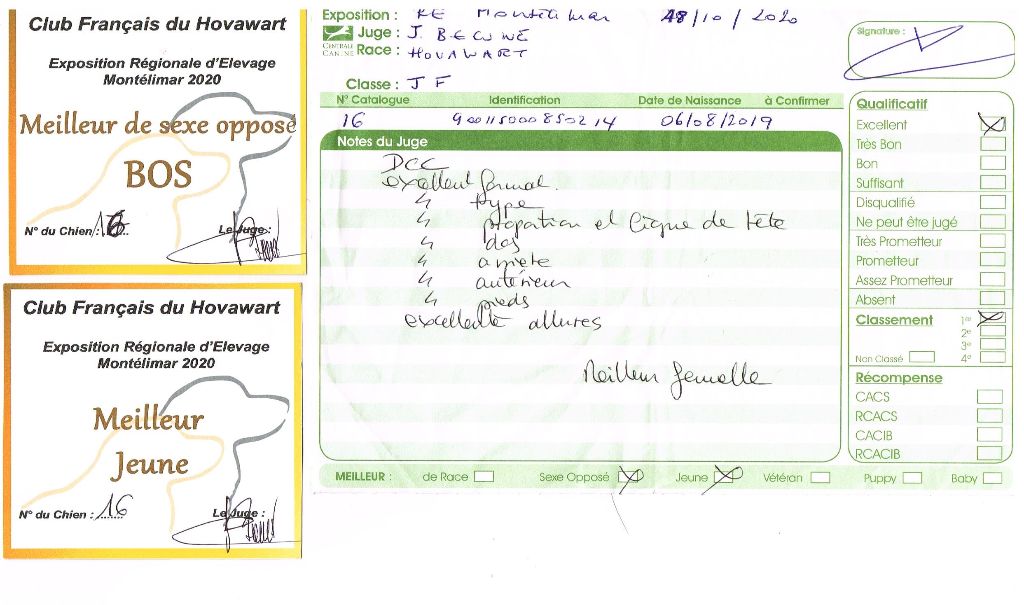 Club Français du Hovawart
Exposition Régionale d'Elevage
Montélimar 2020
Meilleur de sexe opposé
BOS
N° du Chien : 16
Le Juge :
Club Français du Hovawart
Exposition Régionale d'Elevage
Montélimar 2020
Meilleur
Jeune
N° du Chien : 16
Le Juge :
Exposition : RE Montélimar 18/10/2020
CENTRALE CANINE
Juge : J. BECUWE
Race : HOVAWART
Classe : JF
Signature :
N° Catalogue Identification Date de Naissance à Confirmer
16 900115000850214 06/08/2019
Notes du Juge
DCC
excellent format.
" type
" proportion et ligne de tête
" dos
" arrière
" antérieur
" pieds
excellente allures
Meilleur femelle
Qualificatif
Excellent
Très Bon
Bon
Suffisant
Disqualifié
Ne peut être jugé
Très Prometteur
Prometteur
Assez Prometteur
Absent
Classement 1er
2e
3e
Non Classé 4e
Récompense
CACS
RCACS
CACIB
RCACIB
MEILLEUR : de Race Sexe Opposé Jeune Vétéran Puppy Baby